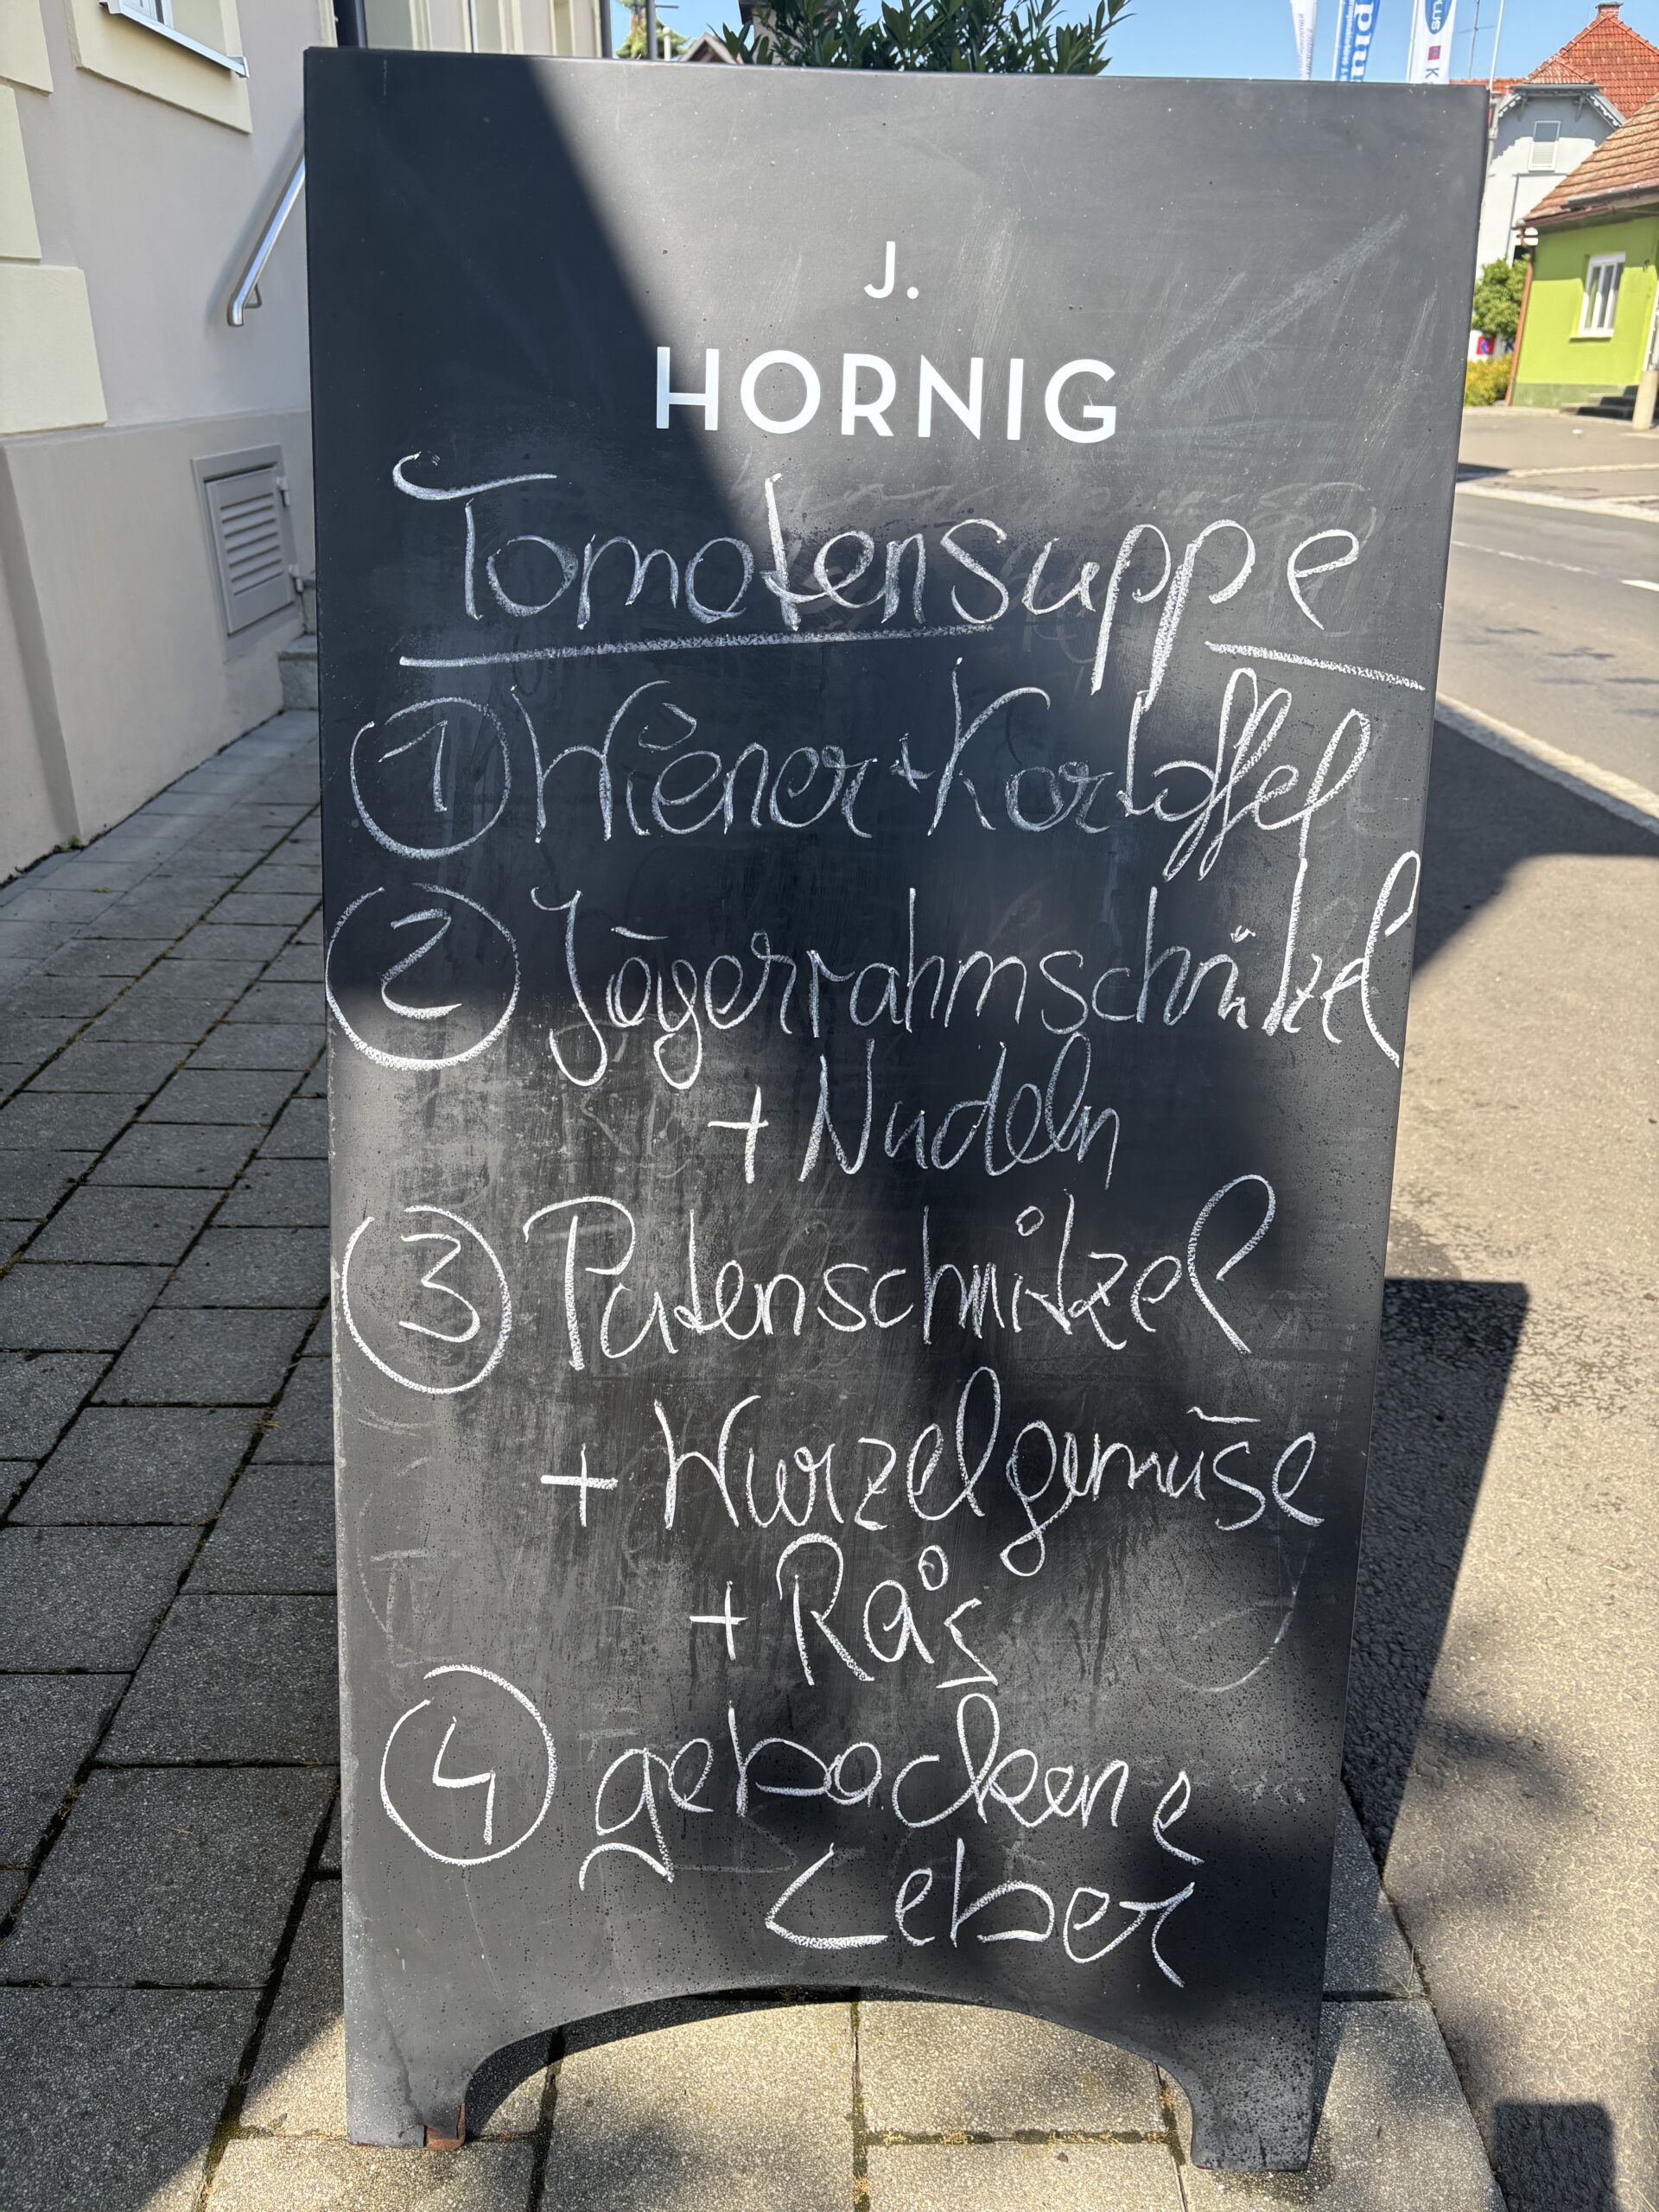 J.
HORNIG
Tomatensuppe
① Wiener + Kartoffel
② Jägerrahmschnitzel
+ Nudeln
③ Putenschnitzel
+ Wurzelgemüse
+ Rais
④ gebackene
Leber